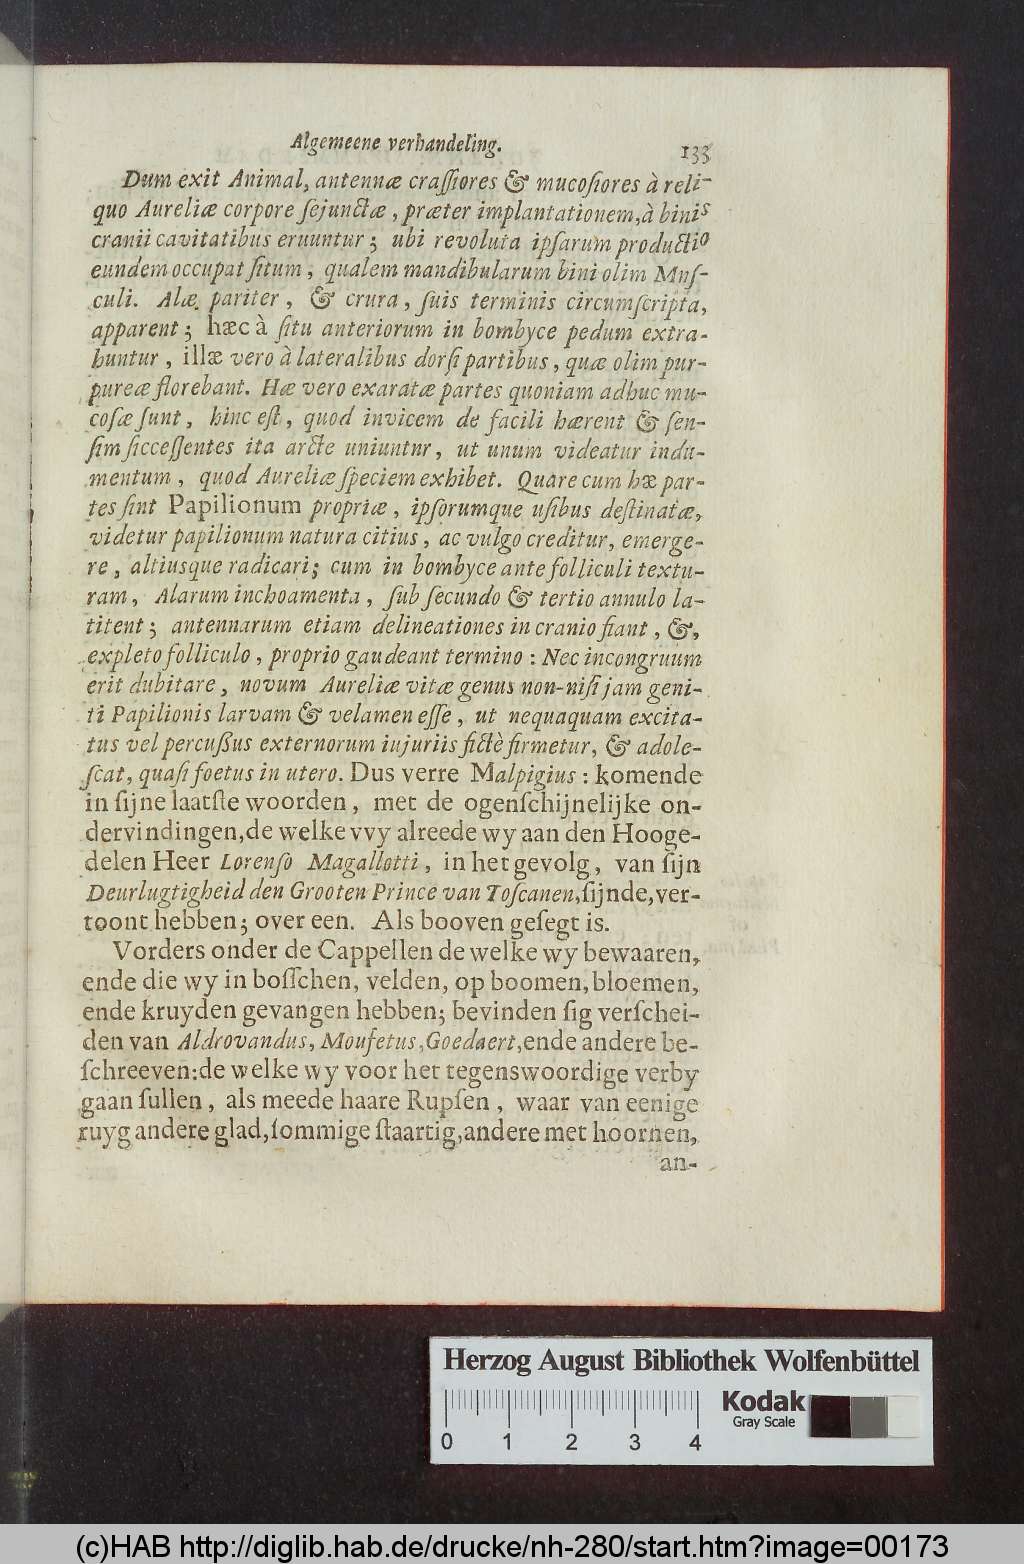 Algemeene verhandeling. 133
Dum exit Animal, antennæ craſſiores & mucoſiores à reli-
quo Aureliæ corpore ſejunctæ, præter implantationem, à binis
cranii cavitatibus eruuntur; ubi revoluta ipſarum productio
eundem occupat ſitum, qualem mandibularum bini olim Muſ-
culi. Alæ pariter, & crura, ſuis terminis circumſcripta,
apparent; hæc à ſitu anteriorum in bombyce pedum extra-
huntur, illæ vero à lateralibus dorſi partibus, quæ olim pur-
pureæ florebant. Hæ vero exaratæ partes quoniam adhuc mu-
coſæ ſunt, hinc eſt, quod invicem de facili hærent & ſen-
ſim ſicceſſentes ita arcte uniuntur, ut unum videatur indu-
mentum, quod Aureliæ ſpeciem exhibet. Quare cum hæ par-
tes ſint Papilionum propriæ, ipſorumque uſibus deſtinatæ,
videtur papilionum natura citius, ac vulgo creditur, emerge-
re, altiusque radicari; cum in bombyce ante folliculi textu-
ram, Alarum inchoamenta, ſub ſecundo & tertio annulo la-
titent; antennarum etiam delineationes in cranio fiant, &,
expleto folliculo, proprio gaudeant termino: Nec incongruum
erit dubitare, novum Aureliæ vitæ genus non-niſi jam geni-
ti Papilionis larvam & velamen eſſe, ut nequaquam excita-
tus vel percuſſus externorum iujuriis fictè firmetur, & adole-
ſcat, quaſi foetus in utero. Dus verre Malpigius: komende
in ſijne laatſte woorden, met de ogenſchijnelijke on-
dervindingen, de welke vvy alreede wy aan den Hooge-
delen Heer Lorenſo Magallotti, in het gevolg, van ſijn
Deurlugtigheid den Grooten Prince van Toſcanen, ſijnde, ver-
toont hebben; over een. Als booven geſegt is.
Vorders onder de Cappellen de welke wy bewaaren,
ende die wy in boſſchen, velden, op boomen, bloemen,
ende kruyden gevangen hebben; bevinden ſig verſchei-
den van Aldrovandus, Moufetus, Goedaert, ende andere be-
ſchreeven: de welke wy voor het tegenswoordige verby
gaan ſullen, als meede haare Rupſen, waar van eenige
ruyg andere glad, ſommige ſtaartig, andere met hoornen,
an-
Herzog August Bibliothek Wolfenbüttel
Kodak
Gray Scale
0 1 2 3 4
(c)HAB http://diglib.hab.de/drucke/nh-280/start.htm?image=00173